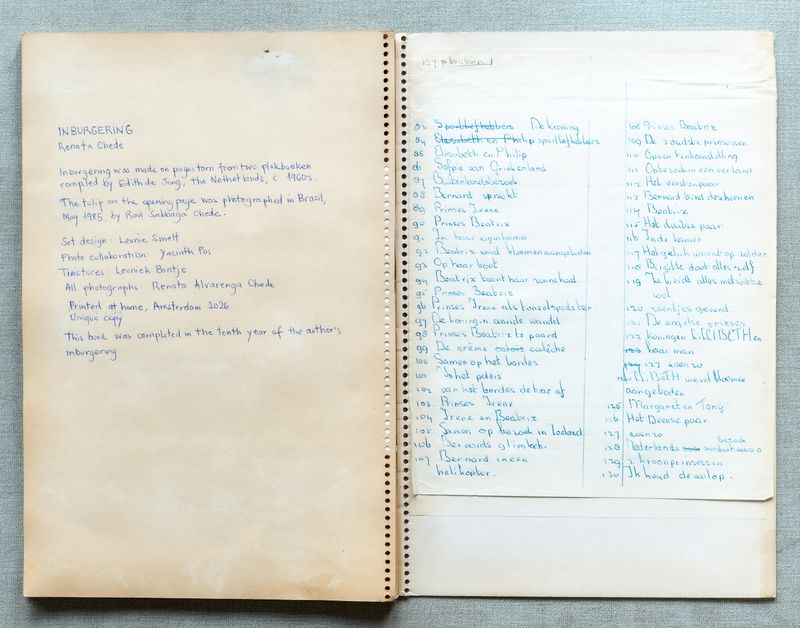 INBURGERING
Renata Chede
Inburgering was made on pages torn from two plakboeken
compiled by Edith de Jong, The Netherlands, c. 1960s.
The tulip on the opening page was photographed in Brazil,
May 1985, by Ravi Sabbaga Chede.
Set design: Leonie Smelt
Photo collaboration: Yacinth Pos
Tinctures: Leoniek Bontje
All photographs: Renata Alvarenga Chede
Printed at home, Amsterdam 2026.
Unique copy
This book was completed in the tenth year of the author's
inburgering
Sportliefhebbers De kroning
84 Elisabeth en Philip sportliefhebbers
85 Elisabeth en Philip
Sofpia van Griekenland
87 Buitenlandsbezoek
88 Bernard spracht
89 Prinses Irene
90 Prinses Beatrix
91 In haar eigen kamer
92 Beatrix werd bloemen aangeboden
93 Op haar boot
94 Beatrix toont haar
95 Prinses Beatrix
96 Prinses Irene als toneelspeelster.
97 De koningin aan de wandel
98 Prinses Beatrix te paard
99 De crème calèche
100 Samen op het bordes
101 In het paleis
102 van het bordes de trap af
103. Prinses Irene
104 Irene en Beatrix
105 Samen op bezoek in Zeeland
106 Bernards glimlach.
107 Bernard in een
helikopter.
108 Prinses Beatrix
109 De zweedse prinsessen
110 Open tentoonstelling
111 Onbekend in een ver land
112 Het vorstenpaar
113 Bernard bind de schoenen
114 Beatrix
115 Het duitse paar
116 In de kamer
117 Het geluk woord op zolder
118 Birgitte doet alles zelf
119 Ze breidt alles met witte
wol
120 zoentjes gevend.
121 De engelse prinses
122 koningen ELIZIBETH en
haar man
123 evenzo
ELIZIBETH werd bloemen
aangeboden
125 Margaret en Tony
126 Het Deense paar
127 evenzo
bezoek
128 Nederlands
129 2 kroonprinsessen
130 Ik houd de wol op.